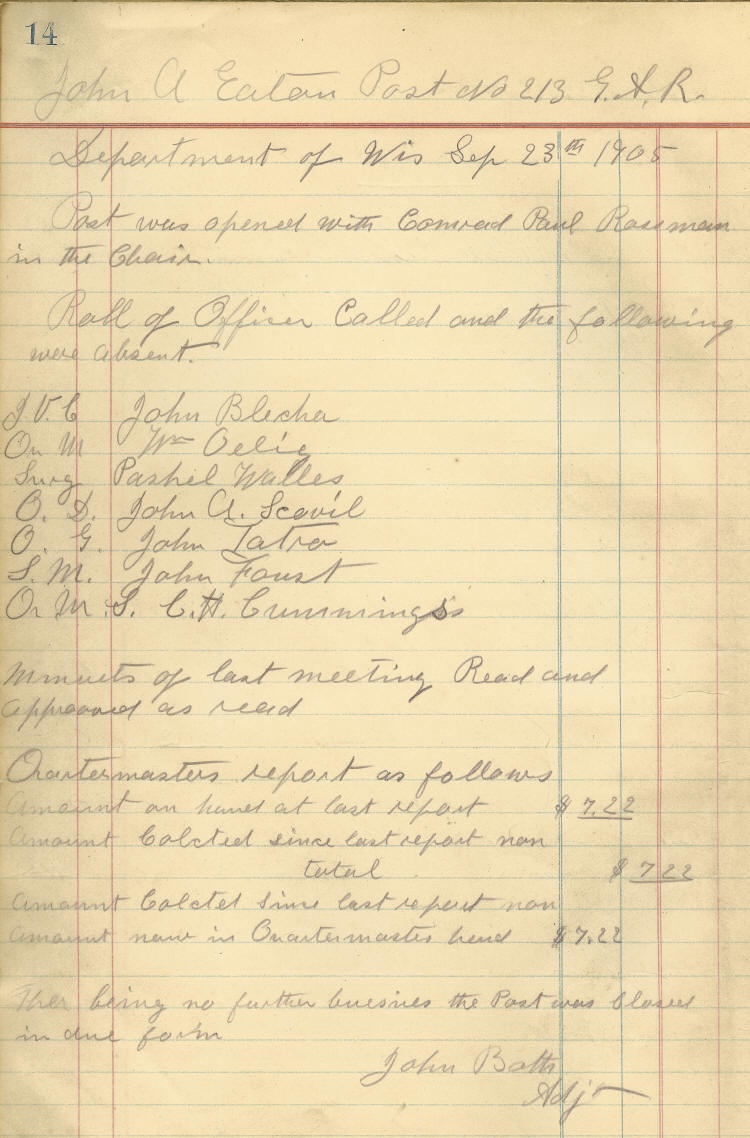 14
John A Eaton Post No 213 G.A.R.
Department of Wis Sep 23th 1905
Post was opened with Comrad Paul Rossman
in the Chair.
Roll of Officer Called and the following
were absent.
J.V.C John Blecha
Qu M Wm Oelig
Surg Pashel Walles
O. D. John A. Scovil
O. G. John Tatro
S.M. John Foust
Qr M.S. C.H. Cummings
Minuets of last meeting Read and
approoved as read
Quartermasters report as follows
Amount on hand at last report $ 7.22
Amount Colcted since last report non
total $ 7 22
Amount Colcted since last report non
Amount now in Quartermasters hand $7.22
Ther being no further buesnies the Post was Closed
in due form
John Bath
Adjt